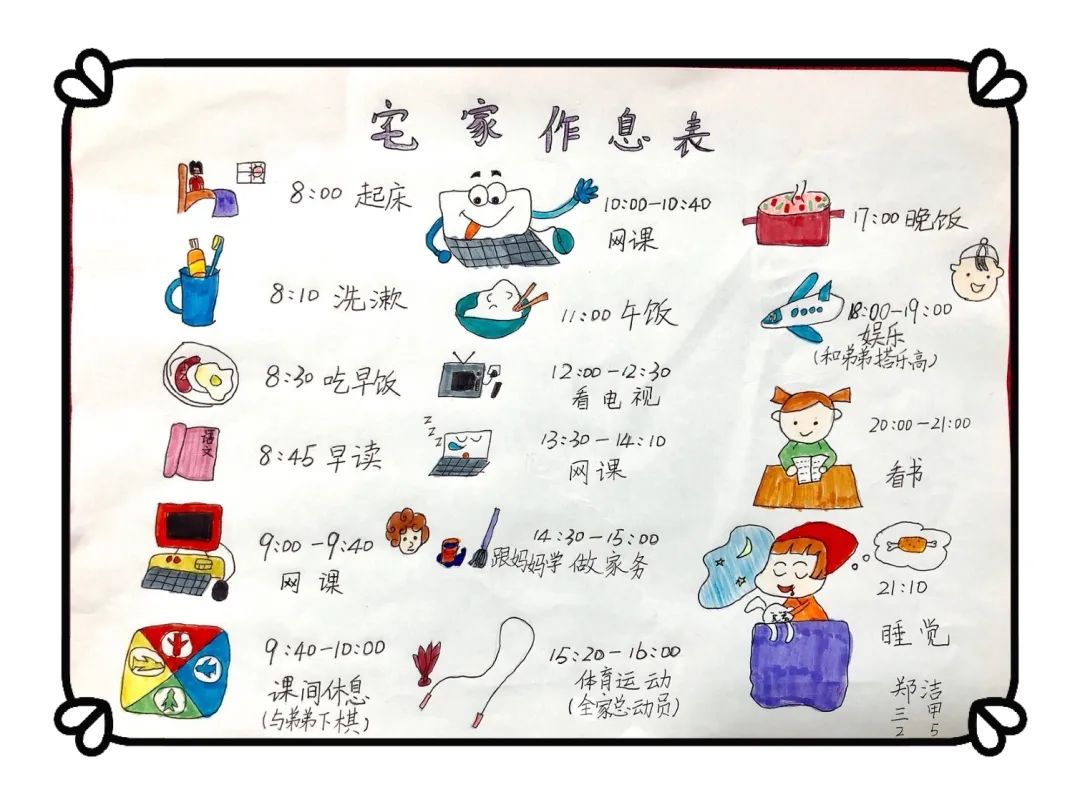 宅家作息表
8:00 起床
8:10 洗漱
8:30 吃早饭
语文
8:45 早读
9:00-9:40
网课
9:40-10:00
课间休息
(与弟弟下棋)
10:00-10:40
网课
11:00 午饭
12:00-12:30
看电视
z
z
z
13:30-14:10
网课
14:30-15:00
跟妈妈学做家务
15:20-16:00
体育运动
(全家总动员)
17:00 晚饭
18:00-19:00
娱乐
(和弟弟搭乐高)
20:00-21:00
看书
21:10
睡觉
郑洁
三甲
2 5